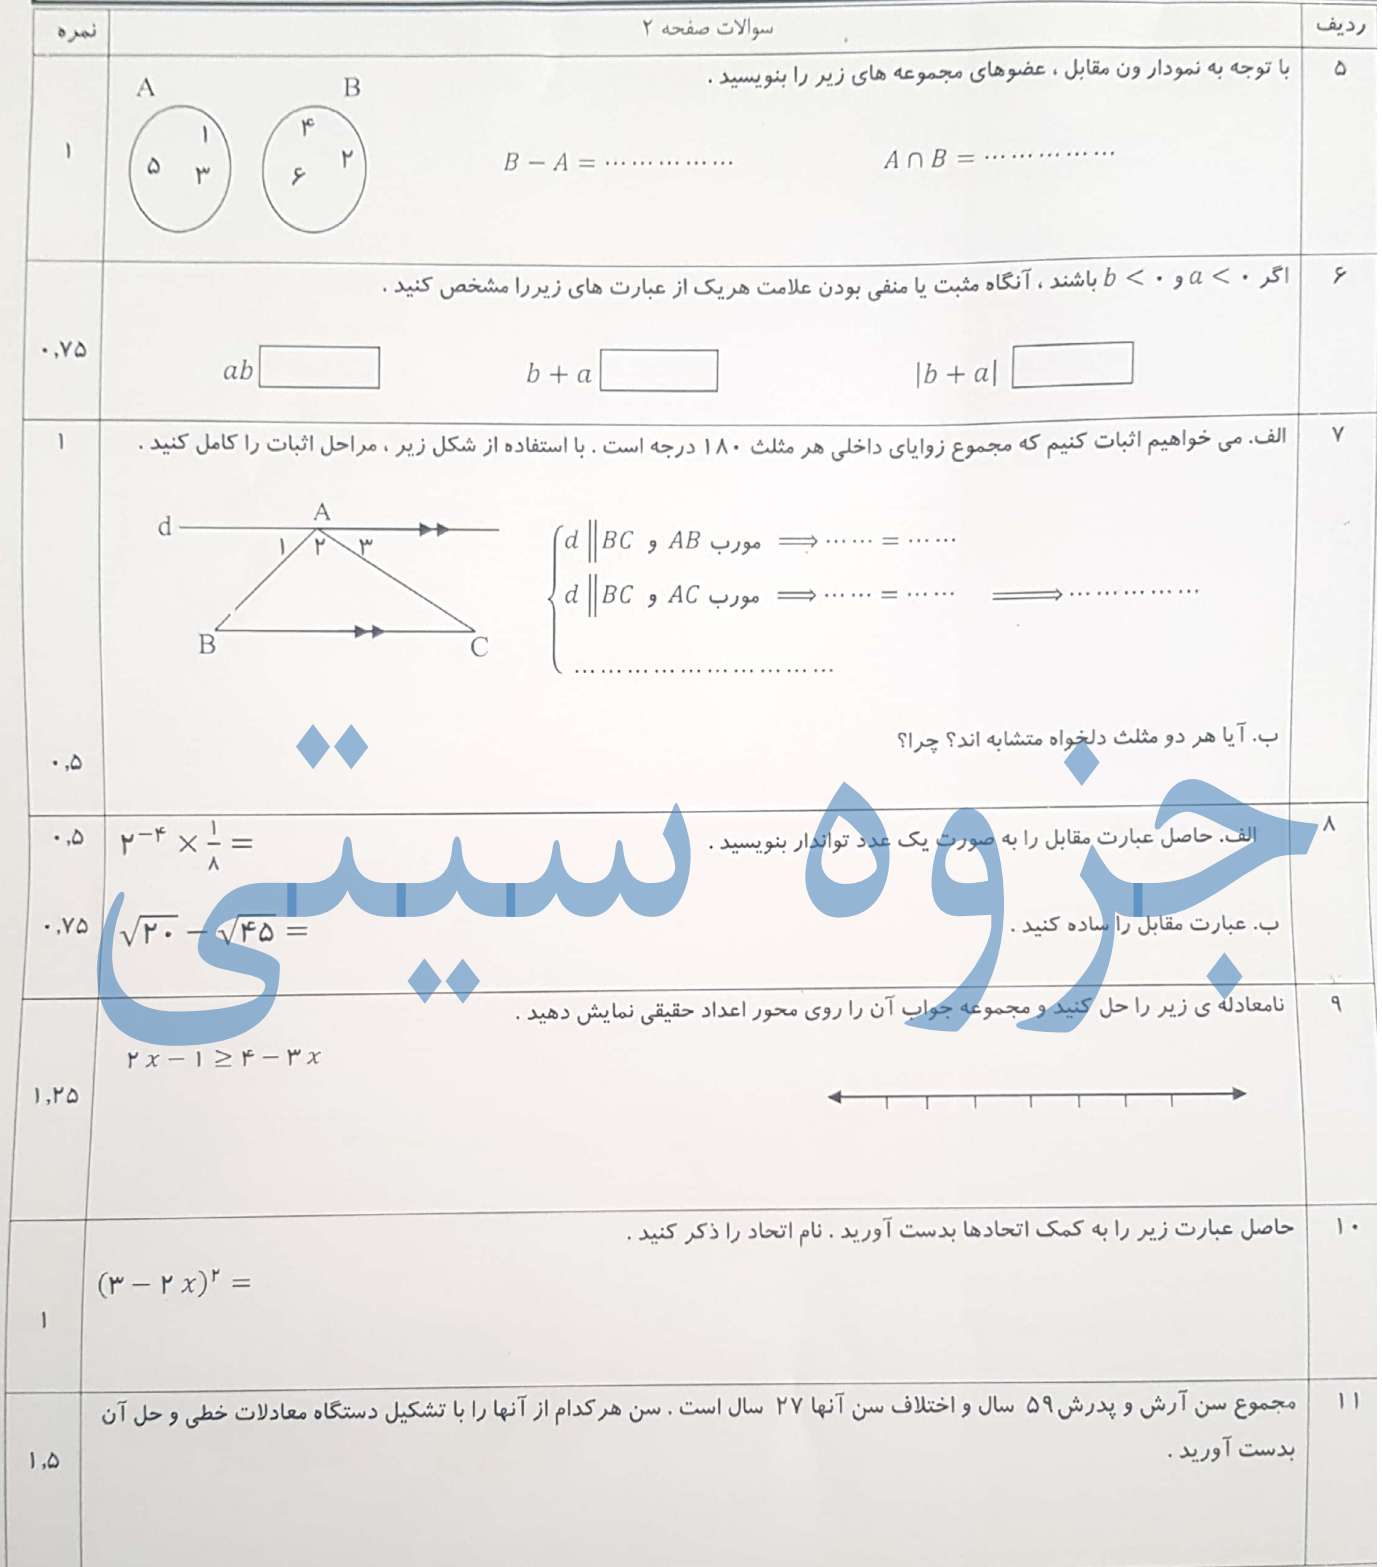 ردیف سوالات صفحه ۲ نمره
۵ با توجه به نمودار ون مقابل ، عضوهای مجموعه های زیر را بنویسید . ۱
A B
۱ ۵ ۳ ۴ ۲ ۶
B − A = ............... A ∩ B = ...............
۶ اگر a < ۰ و b < ۰ باشند ، آنگاه مثبت یا منفی بودن علامت هریک از عبارت های زیررا مشخص کنید . ۰,۷۵
ab b + a |b + a|
۷ الف. می خواهیم اثبات کنیم که مجموع زوایای داخلی هر مثلث ۱۸۰ درجه است . با استفاده از شکل زیر ، مراحل اثبات را کامل کنید . ۱
d A ۱ ۲ ۳ B C
d ∥ BC و AB مورب ⟹ ...... = ......
d ∥ BC و AC مورب ⟹ ...... = ...... ⟹ ...............
..............................
ب. آیا هر دو مثلث دلخواه متشابه اند؟ چرا؟ ۰,۵
جزوه سیتی
۸ الف. حاصل عبارت مقابل را به صورت یک عدد تواندار بنویسید . ۰,۵
۲⁻⁴ × ۱/۸ =
ب. عبارت مقابل را ساده کنید . ۰,۷۵
√۲۰ − √۴۵ =
۹ نامعادله ی زیر را حل کنید و مجموعه جواب آن را روی محور اعداد حقیقی نمایش دهید .
۲x − ۱ ≥ ۴ − ۳x
۱,۲۵
۱۰ حاصل عبارت زیر را به کمک اتحادها بدست آورید . نام اتحاد را ذکر کنید .
(۳ − ۲x)² =
۱
۱۱ مجموع سن آرش و پدرش ۵۹ سال و اختلاف سن آنها ۲۷ سال است . سن هرکدام از آنها را با تشکیل دستگاه معادلات خطی و حل آن
بدست آورید . ۱,۵